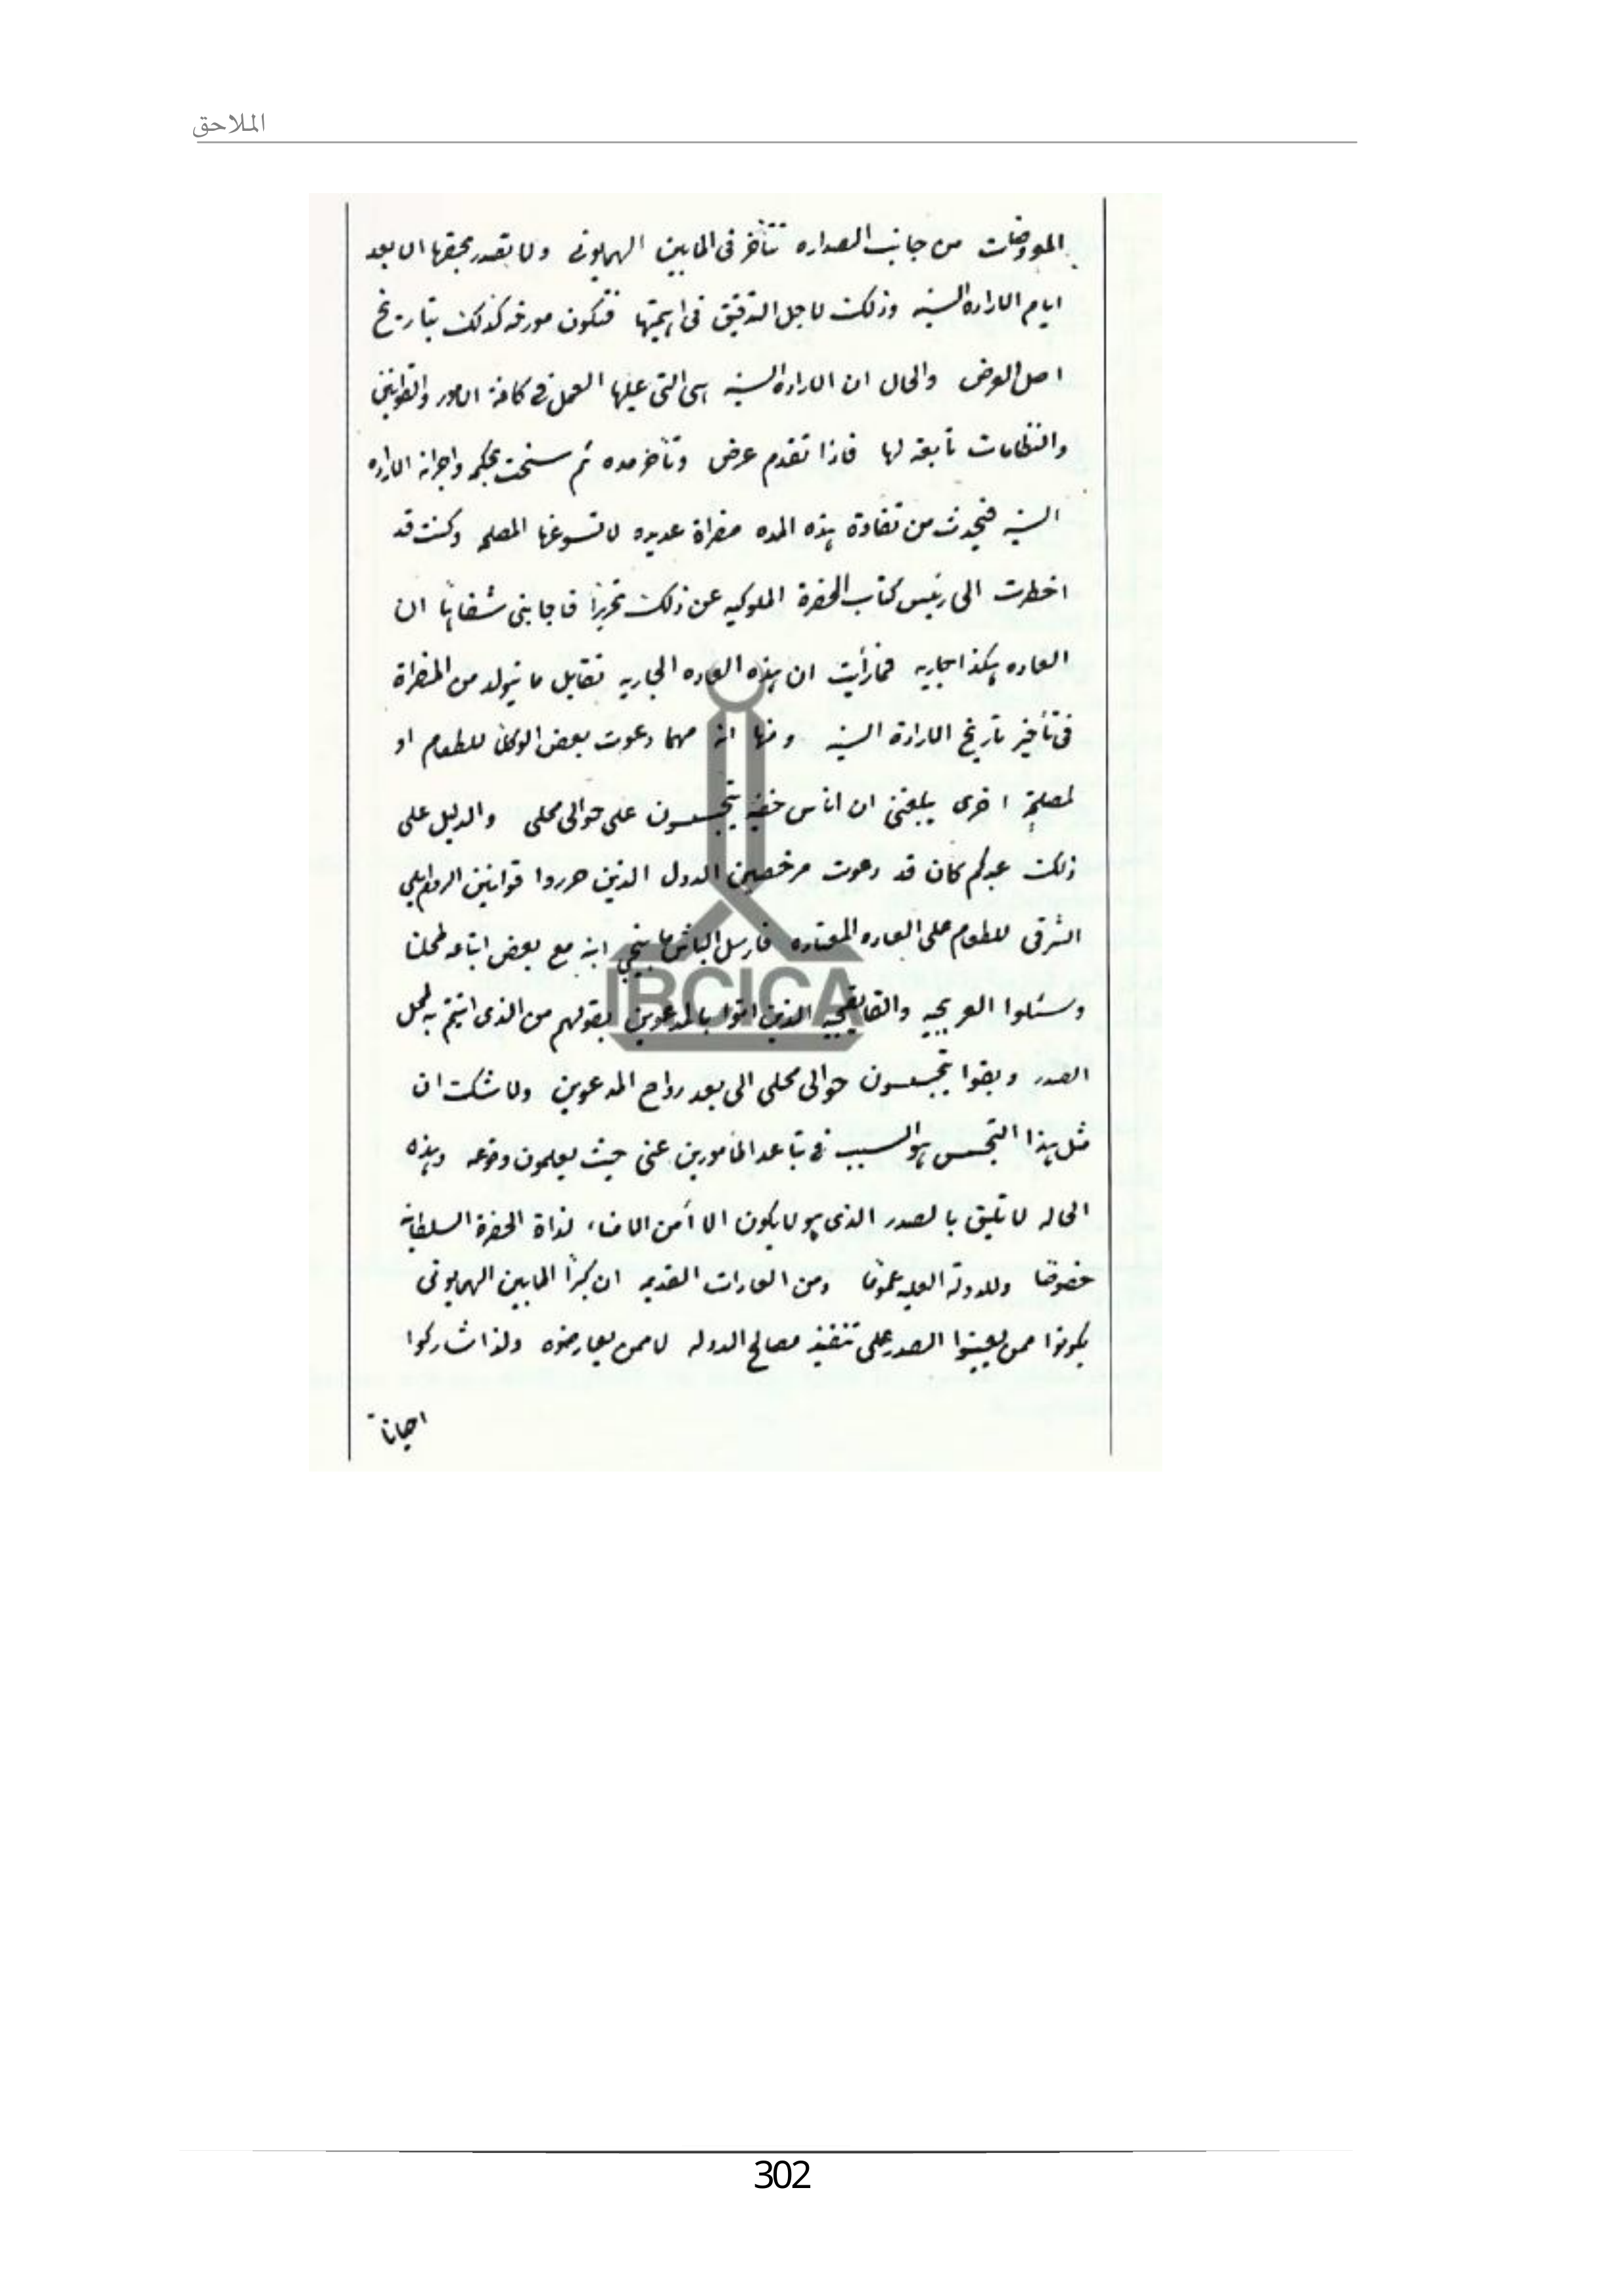 الملاحق
المعروضات من جانب الصداره تتأخر فى المابين الهمايونى ولا تصدر بحقها الا بعد
ايام الاراده السنيه وذلك لاجل التدقيق فى اهميتها فتكون مورخه كذلك بتاريخ
اصل العرض والحال ان الاراده السنيه هى التى عليها العمل فى كافة الامور والقوانين
والنظامات تابعه لها فاذا تقدم عرض وتأخر مده ثم سنحت بحكمه واجرائه الاراده
السنيه فيحدث من تفاوة هذه المده مضراة عديده لا تسوغها المصلحه وكنت قد
اخطرت الى رئيس كتاب الحضرة الملوكيه عن ذلك تحريرًا فاجابنى شفاهًا ان
العاده هكذا جاريه فمارأيت ان هذه العاده الجاريه تقابل ما يتولد من المضراة
فى تأخير تاريخ الارادة السنيه ومنها انه مهما دعوت بعض الوكلا للطعام او
لمصلحة اخرى يبلغنى ان اناس خفيه يتجسسون على حوالى محلى والدليل على
ذلك عبدكم كان قد دعوت مرخصين الدول الذين حرروا قوانين الروم ايلى
الشرقى للطعام على العاده المعتاده فارسل الباش مابينجى ابنه مع بعض اتباعه لمحلنا
وسئلوا العربجيه والقايقجيه الذين اتوا بالمدعوين بقولهم من الذى اتيتم به لمحل
الصدر وبقوا يتجسسون حوالى محلى الى بعد رواح المدعوين ولا شك ان
مثل هذا التجسس هو السبب فى تباعد المأمورين عنى حيث يعلمون وقوعه وهذه
الحاله لا تليق بالصدر الذى هو لا يكون الا أمن الامناء لذاة الحضرة السلطانيه
خصوصًا وللدولة العليه عمومًا ومن العادات القديمه ان كبرا المابين الهمايونى
يكونوا ممن يعينوا الصدر على تنفيذ مصالح الدوله لا ممن يعارضوه ولذا شاركوا
احيانًا
IRCICA
302